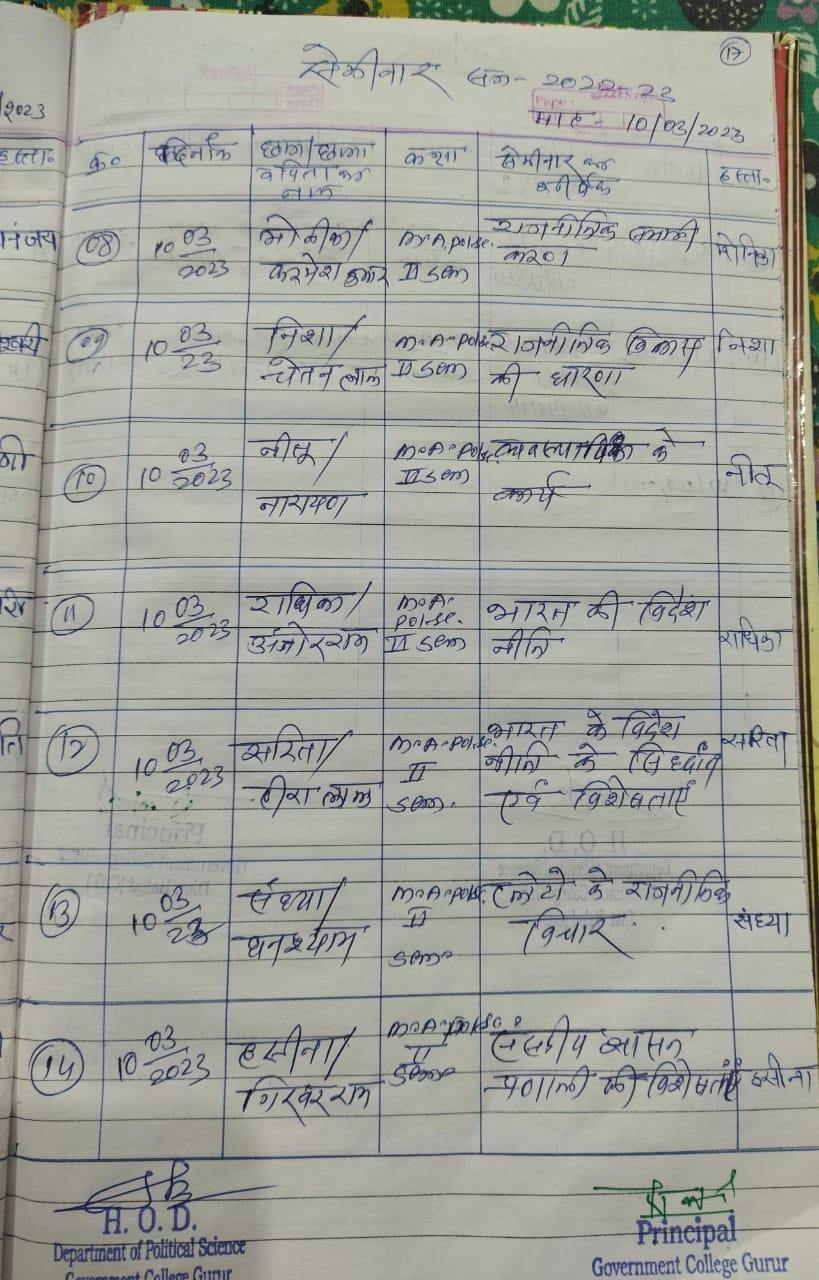 17
सेमीनार सत्र- 2022-23
माह- 10/03/2023
क्र० दिनाँक छात्र/छात्रा व पिता का नाम कक्षा सेमीनार का शीर्षक हस्ता०
08 10 03/2023 मोनिका/ M.A. pol.sc. राजनीतिक समाजी मोनिका
II sem करण
09 10 03/23 निशा/ M.A. pol.sc. राजनीतिक विकास निशा
चेतन लाल II sem की धारणा
10 10 03/2023 नीलू/ M.A. pol.sc. व्यवस्थापिका के नीलू
नारायण II sem कार्य
11 10 03/2023 राधिका/ M.A. pol.sc. भारत की विदेश राधिका
अंजोरराम II sem नीति
12 10 03/2023 सरिता/ M.A. pol.sc. भारत के विदेश सरिता
हीरा लाल II नीति के सिध्दांत
sem. एवं विशेषताएँ
13 10 03/23 संध्या/ M.A. pol.sc. प्लेटो के राजनीतिक संध्या
घनश्याम II विचार
sem.
14 10 03/2023 हसीना/ M.A. pol.sc. संसदीय शासन हसीना
गिरवर राम II sem. प्रणाली की विशेषताएँ
H. O. D.
Department of Political Science
Government College Gurur
Principal
Government College Gurur